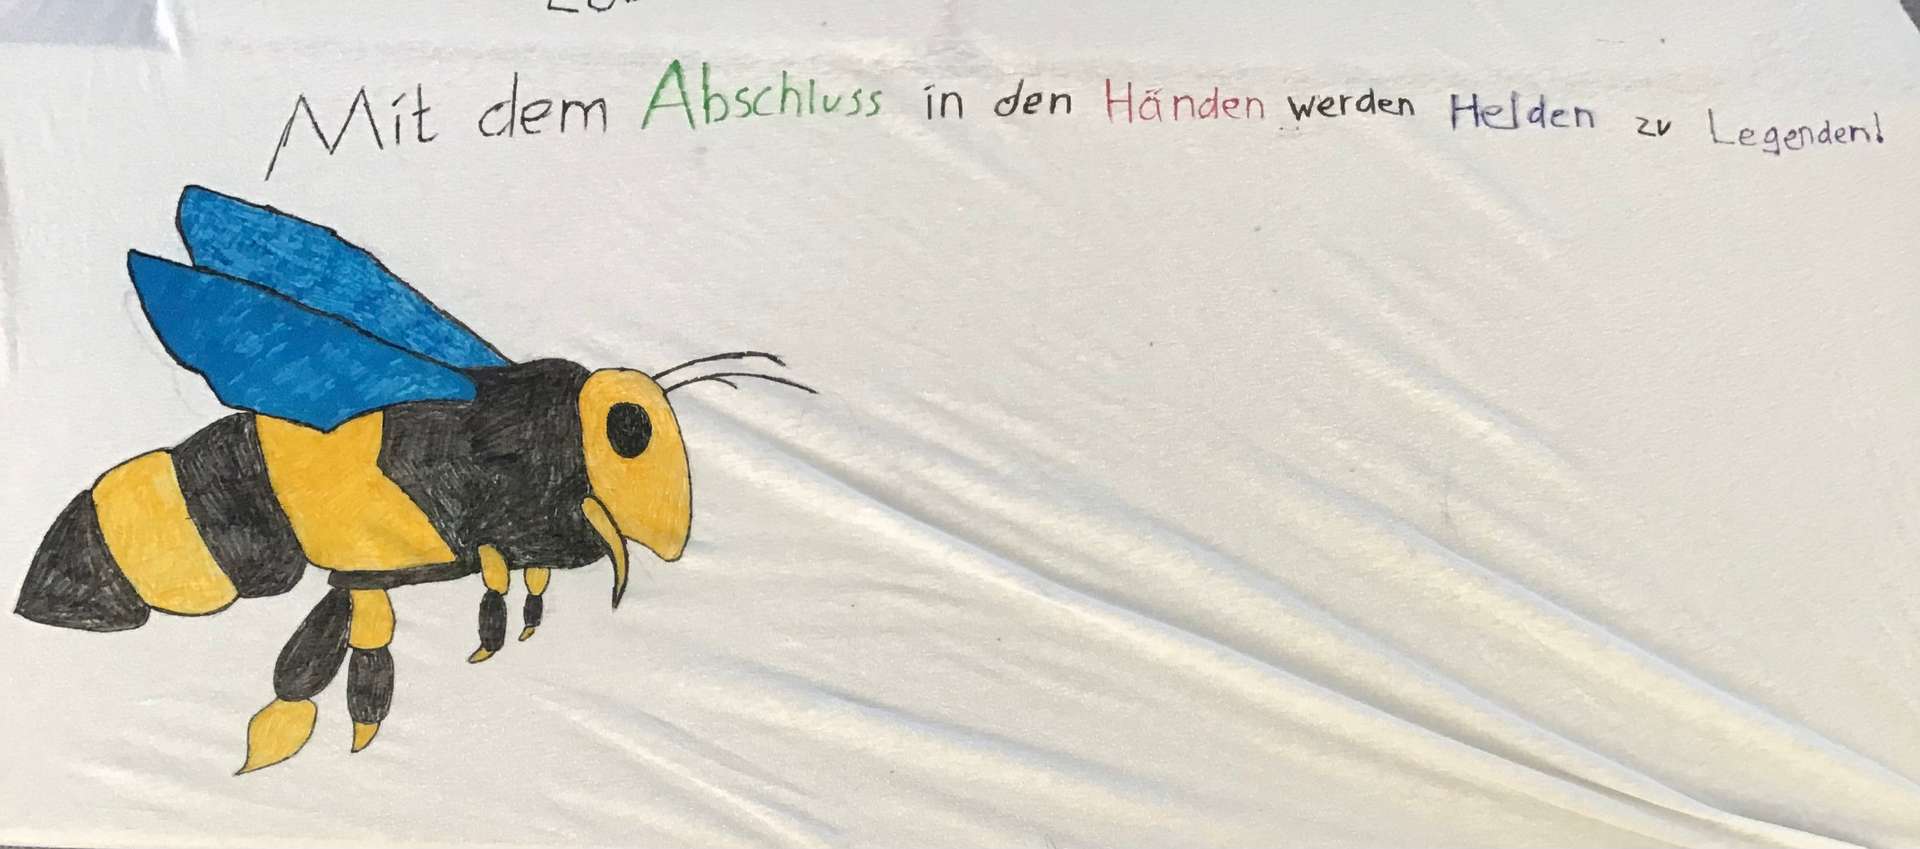 Mit dem Abschluss in den Händen werden Helden zu Legenden!